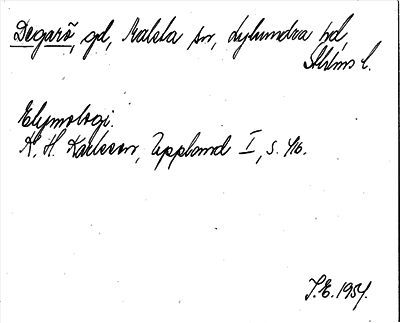 Degarö, gd, Malsta sn, Lyhundra hd,
Sthlms l.
Etymologi.
K. H. Karlsson, Uppland I, s. 416.
S.E. 1954.